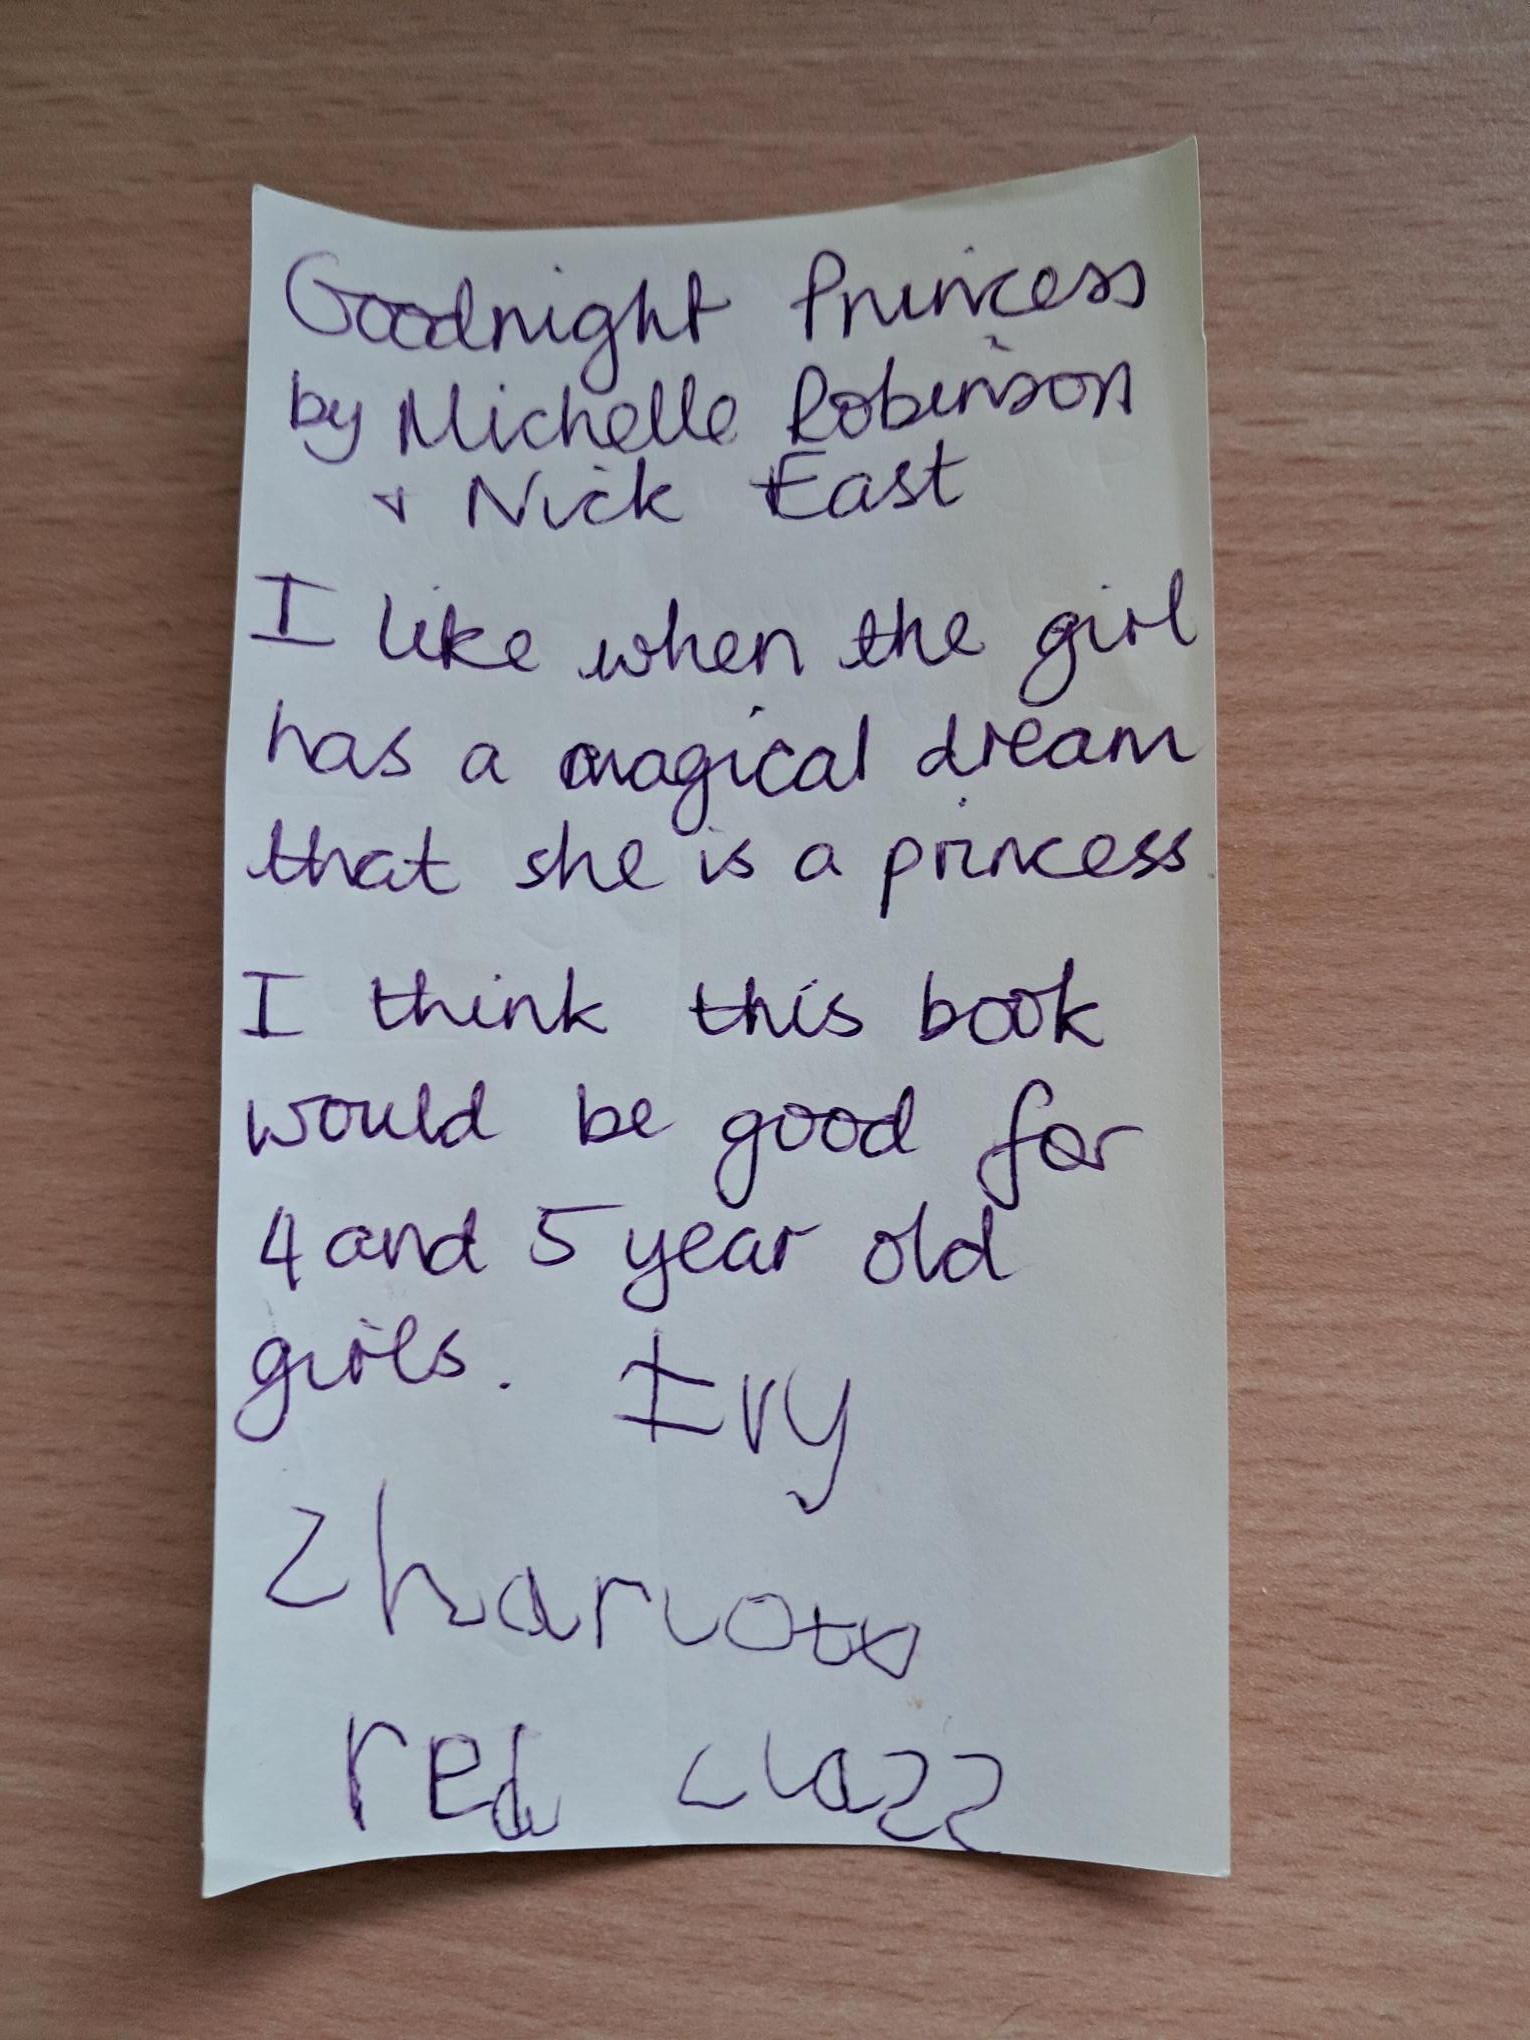 Goodnight Princess
by Michelle Robinson
+ Nick East
I like when the girl
has a magical dream
that she is a princess.
I think this book
would be good for
4 and 5 year old
girls. Ivy
red class